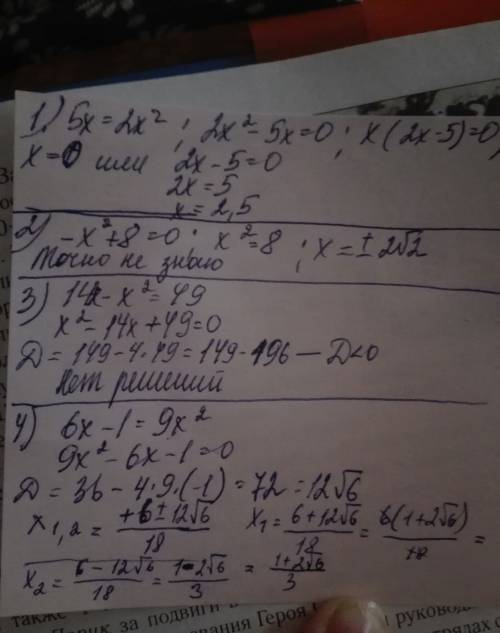 1) 5x = 2x² ; 2x² - 5x = 0 ; x(2x-5)=0;
x = 0 или 2x - 5 = 0
2x = 5
x = 2,5
2) -x² + 8 = 0 ; x² = 8 ; x = ± 2√2
Точно не знаю
3) 14x - x² = 49
x² - 14x + 49 = 0
D = 149 - 4·49 = 149 - 196 — D<0
Нет решений
4) 6x - 1 = 9x²
9x² - 6x - 1 = 0
D = 36 - 4·9·(-1) = 72 = 12√6
x₁,₂ = +6 ± 12√6 / 18 x₁ = 6 + 12√6 / 18 = 6(1+2√6) / 18 =
x₂ = 6 - 12√6 / 18 = 1 - 2√6 / 3 = 1 + 2√6 / 3
также
за подвиги в
ования Героя
руково